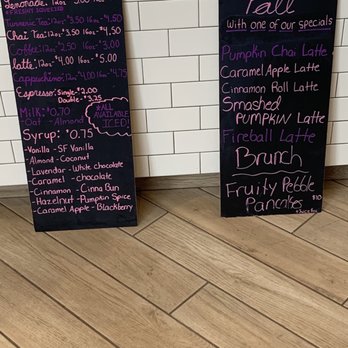 Lemonade 12oz 3.50 16oz 4.50
Turmeric Tea: 12oz $3.50 16oz $4.50
Chai Tea: 12oz $3.50 16oz $4.50
Coffee: 12oz $2.50 16oz $3.00
latte: 12oz $4.00 16oz $5.00
Cappuchino: 12oz $4.00 16oz
Espresso: Single-$2.00
Double-$3.25
*ALL AVAILABLE ICED!
Milk: $0.70
-Oat -Almond
Syrup: $0.75
-Vanilla - SF Vanilla
-Almond - Coconut
-Lavendar - White chocolate
-Caramel - chocolate
-Cinnamon - Cinna Bun
-Hazelnut - Pumpkin Spice
-Caramel Apple - Blackberry
Fall
with one of our specials
Pumpkin Chai Latte
Caramel Apple Latte
Cinnamon Roll Latte
Smashed
PUMPKIN Latte
Fireball Latte
Brunch
Fruity Pebble
Pancakes $10